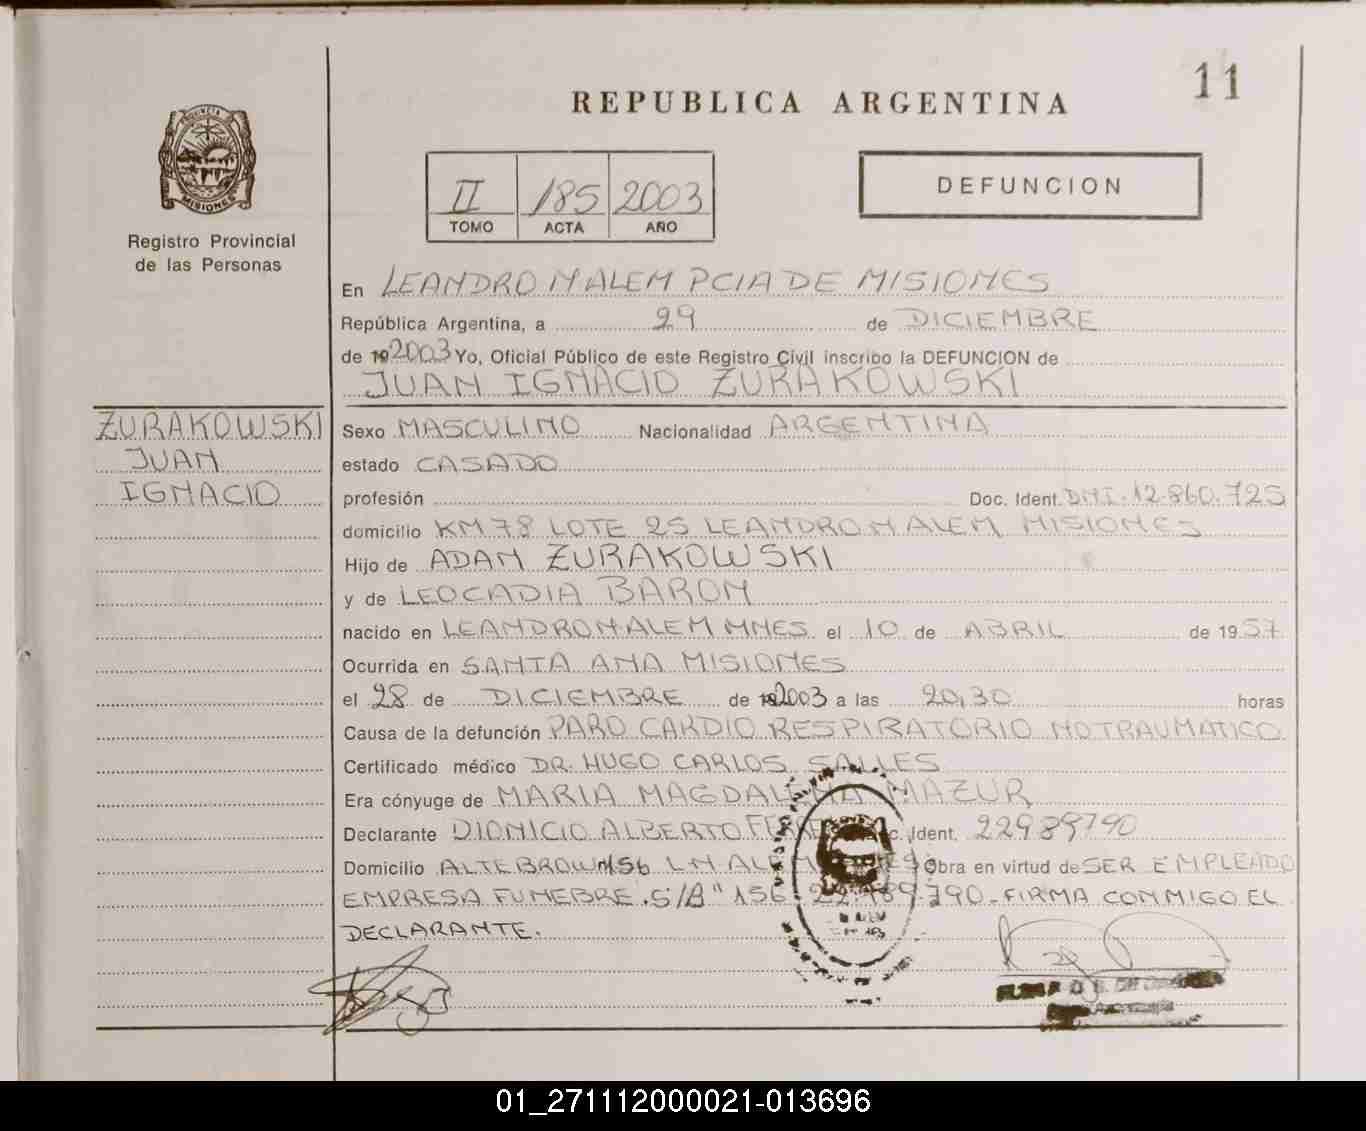 11
REPUBLICA ARGENTINA
PROVINCIA DE
MISIONES
Registro Provincial
de las Personas
II 185 2003
TOMO ACTA AÑO
DEFUNCION
En LEANDRO N ALEM PCIA DE MISIONES
República Argentina, a 29 de DICIEMBRE
de 192003 Yo, Oficial Público de este Registro Civil inscribo la DEFUNCION de
JUAN IGNACIO ZURAKOWSKI
ZURAKOWSKI
JUAN
IGNACIO
Sexo MASCULINO Nacionalidad ARGENTINA
estado CASADO
profesión Doc. Ident. DNI. 12.860.725
domicilio KM 78 LOTE 25 LEANDRO N ALEM MISIONES
Hijo de ADAN ZURAKOWSKI
y de LEOCADIA BARON
nacido en LEANDRO N. ALEM MNES el 10 de ABRIL de 1957
Ocurrida en SANTA ANA MISIONES
el 28 de DICIEMBRE de 192003 a las 20,30 horas
Causa de la defunción PARO CARDIO RESPIRATORIO NO TRAUMATICO
Certificado médico DR. HUGO CARLOS SALLES
Era cónyuge de MARIA MAGDALENA MAZUR
Declarante DIONICIO ALBERTO Ident. 22989790
Domicilio ALTE BROWN 156 L.N ALEM Obra en virtud de SER EMPLEADO
EMPRESA FUNEBRE. S/B" 156 790. FIRMA CONMIGO EL
DECLARANTE.
01_271112000021-013696